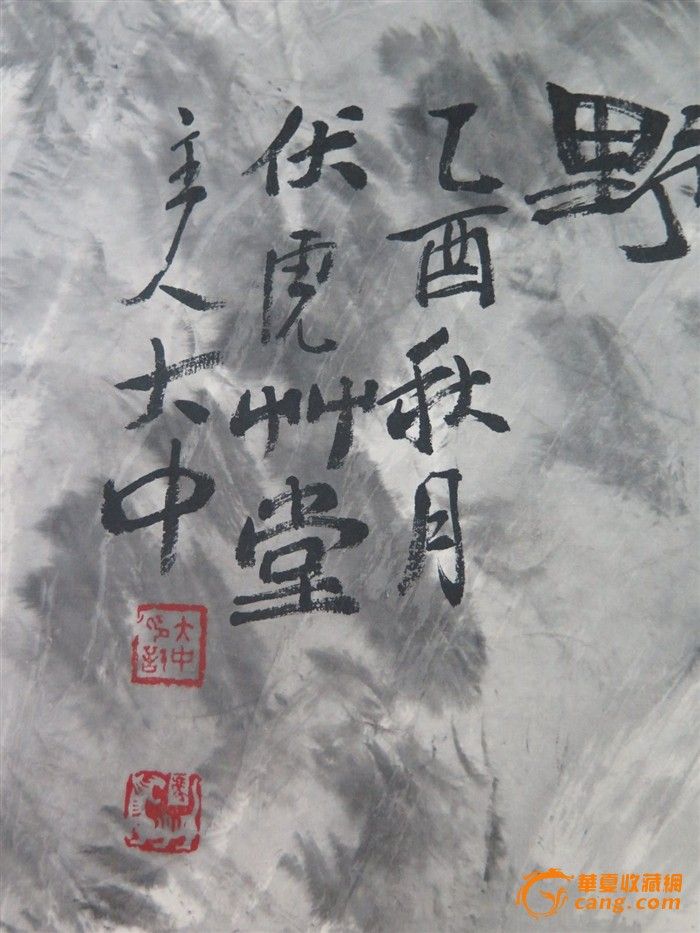 野
乙酉秋月
伏虎艸堂
主人大中
大中
華夏收藏網
cang.com